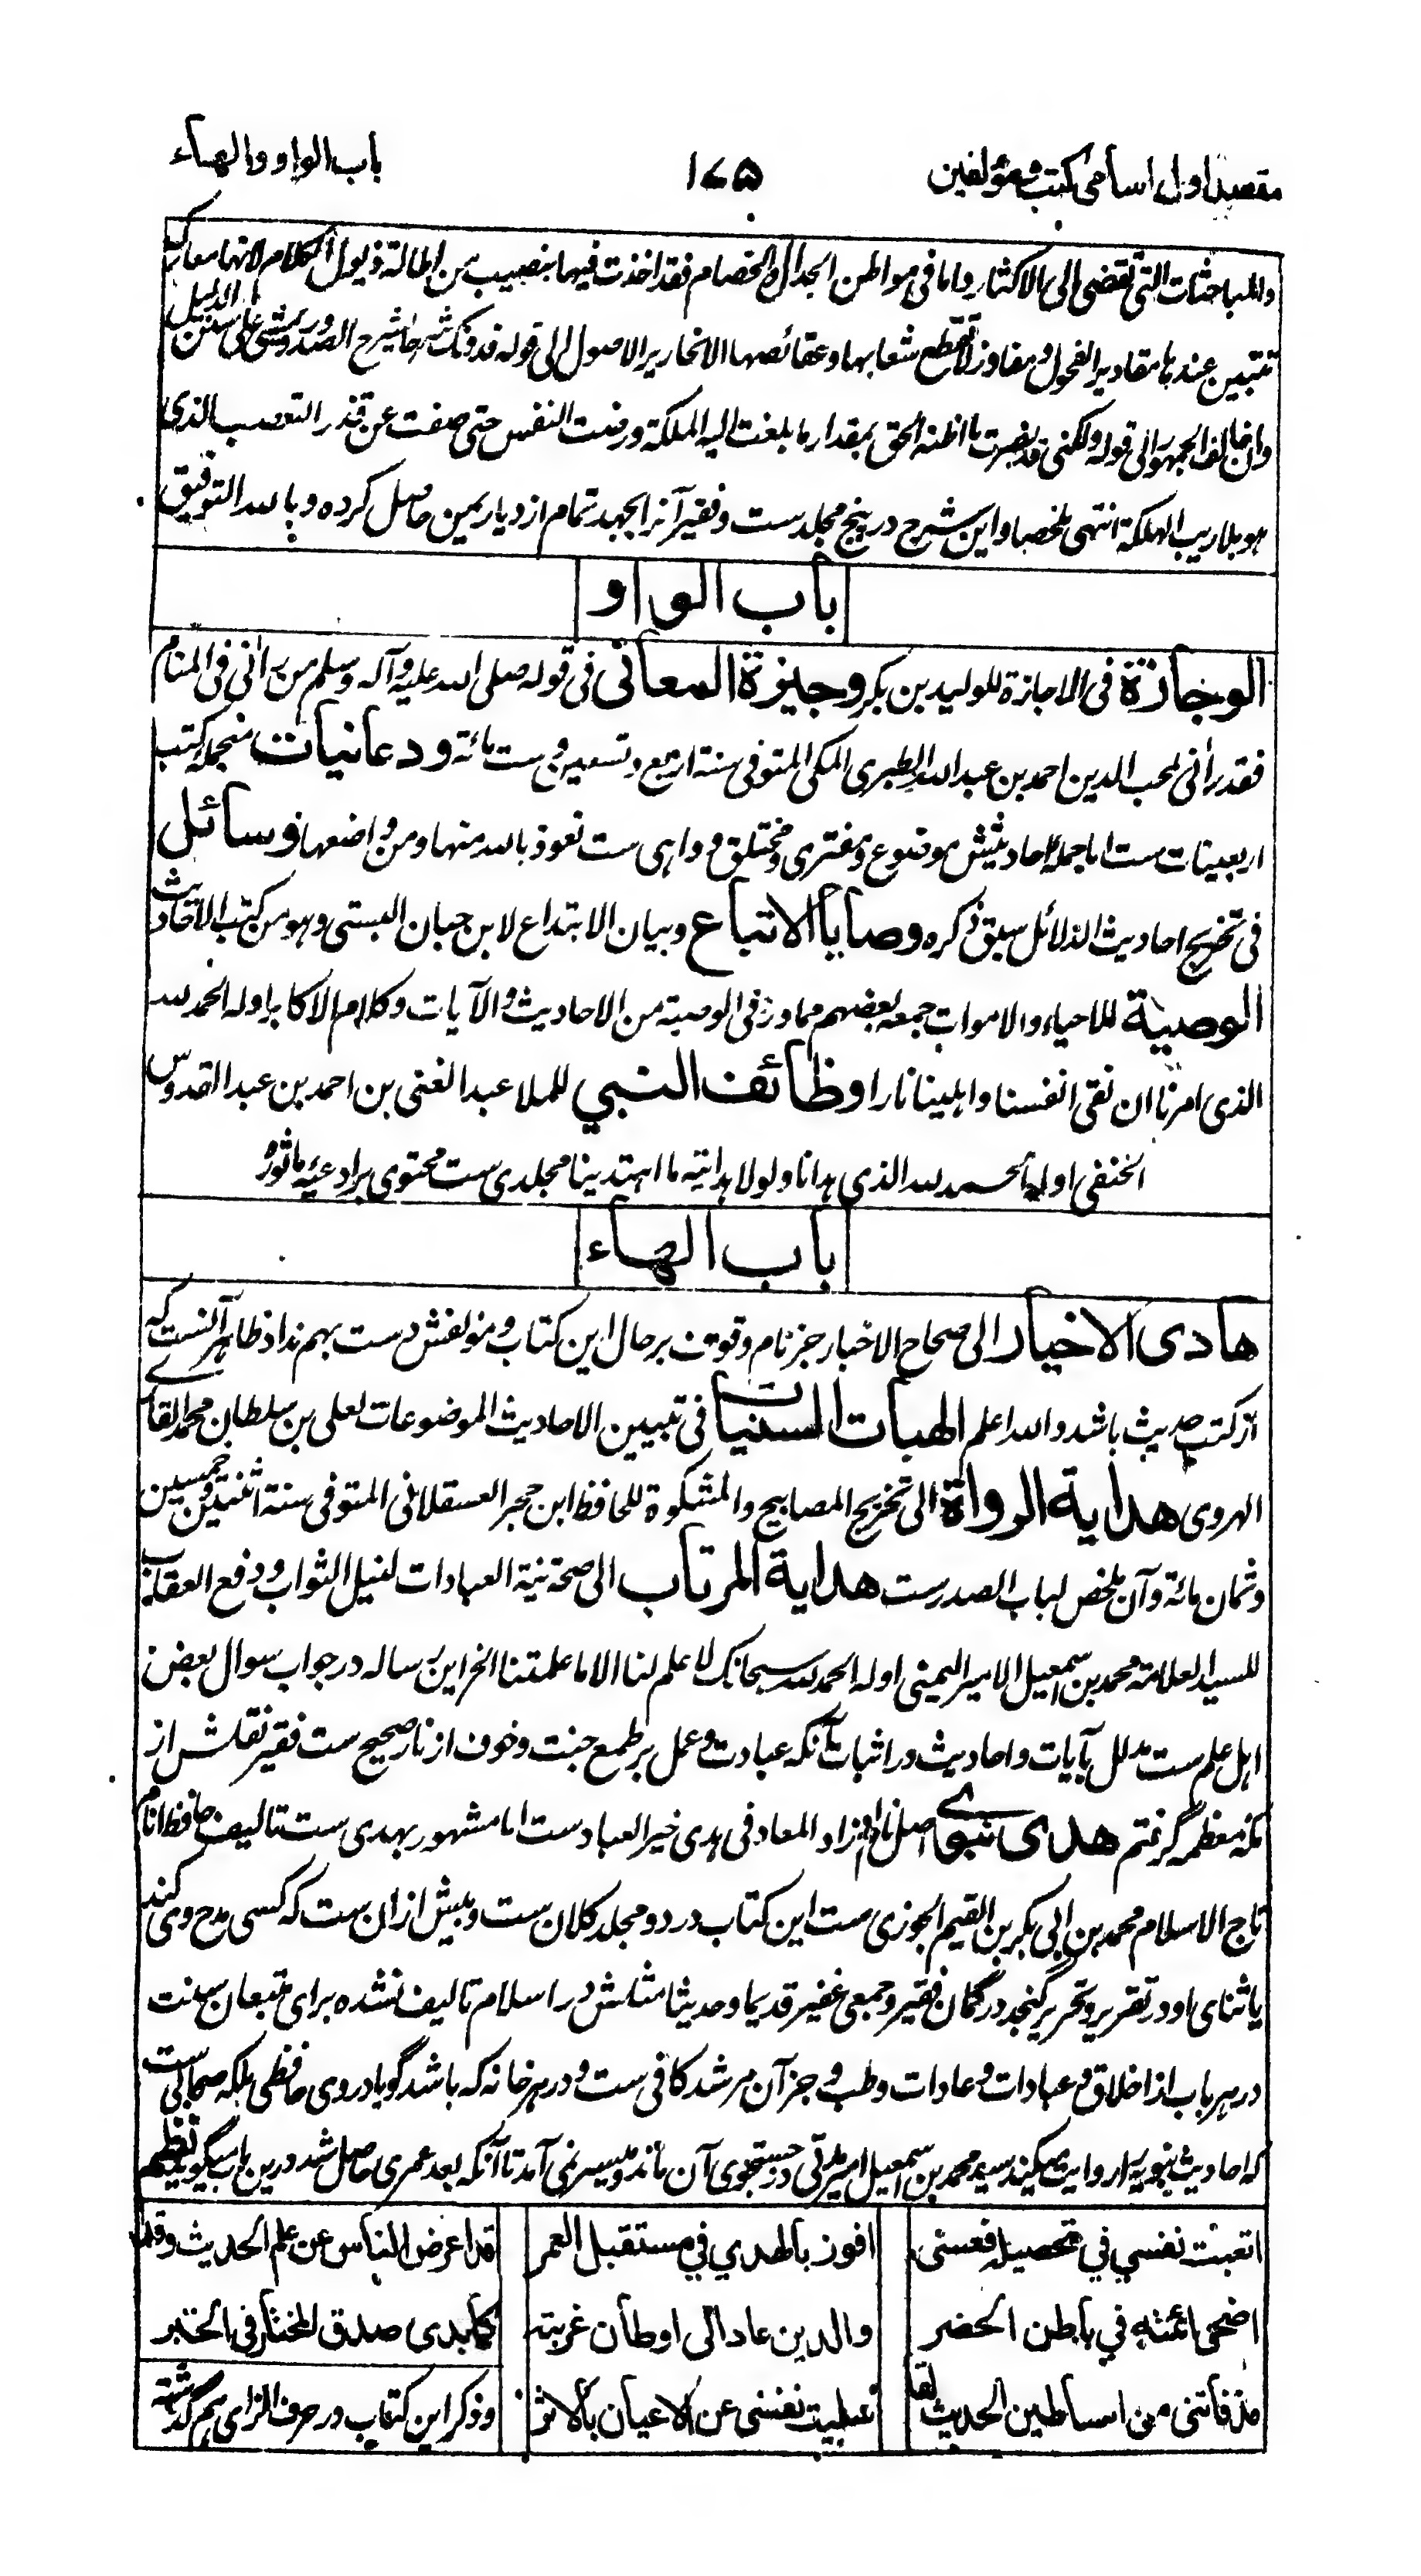 مقصد اول اسامی کتب و مؤلفین
۱۷۵
باب الواو والهاء
والمباحثات التی تقضی الی الاکثار واما فی مواطن الجدال والخصام فقد اخذت فیها بنصیب من اطالة ذیول الکلام لانها معارک
تتبین عندها مقادیر الفحول ومفاوز لا یقطع شعابها وعقائصها الا نحاریر الاصول الی قوله فدونک شرحا یشرح الصدور ویمشی علی سنن الدلیل
وان خالف الجمهور الی قوله ولکننی قد نصرت ما اظنه الحق بمقدار ما بلغت الیه الملکة ورضت النفس حتی صفت عن قذر التعصب الذی
هو بلا ریب الهلکة انتهی ملخصا واین شرح در پنج مجلد ست وفقیر آنرا بجهد تمام از دیار یمن حاصل کرده وبالله التوفیق
باب الواو
الوجازة فی الاجازة للولید بن بکر وجیزة المعانی فی قوله صلی الله علیه وآله وسلم من رآنی فی المنام
فقد رآنی لمحب الدین احمد بن عبد الله الطبری المکی المتوفی سنة اربع وتسعین وست مائة ودعانیات منجمله کتب
اربعینات ست اما جمله احادیثش موضوع ومفتری ومختلق و واهی ست نعوذ بالله منها ومن واضعها وسائل
فی تخریج احادیث الدلائل سبق ذکره وصایا الاتباع وبیان الابتداع لابن حبان البستی وهو من کتب الاحادیث
الوصیة للاحیاء والاموات جمعه بعضهم مما ورد فی الوصیة من الاحادیث والآیات وکلام الاکابر اوله الحمد لله
الذی امرنا ان نقی انفسنا واهلینا نارا وظائف النبی للملا عبد الغنی بن احمد بن عبد القدوس
الحنفی اوله الحمد لله الذی هدانا ولولا هدایته ما اهتدینا مجلدی ست محتوی بر ادعیۀ ماثوره
باب الهاء
هادی الاخیار الی صحاح الاخبار جز نام وقوف بر حال این کتاب و مؤلفش دست بهم نداد ظاهر آنست که
از کتب حدیث باشد والله اعلم الهبات السنیات فی تبیین الاحادیث الموضوعات لعلی بن سلطان محمد القاری
الهروی هدایة الرواة الی تخریج المصابیح والمشکوة للحافظ ابن حجر العسقلانی المتوفی سنة اثنتین وخمسین
وثمان مائة وآن ملخص لباب الصدر ست هدایة المرتاب الی صحة نیة العبادات لنیل الثواب ودفع العقاب
للسید العلامة محمد بن اسمعیل الامیر الیمنی اوله الحمد لله سبحانک لا علم لنا الا ما علمتنا الخ این رساله در جواب سوال بعض
اهل علم ست مدلل بآیات واحادیث در اثبات آنکه عبادت وعمل بر طمع جنت وخوف از نار صحیح ست فقیر نقلش از
مکه معظمه گرفتم هدی نبوی اصل نام زاد المعاد فی هدی خیر العباد ست اما مشهور بهدی ست تالیف حافظ انام
تاج الاسلام محمد بن ابی بکر بن القیم الجوزی ست این کتاب در دو مجلد کلان ست وبیش از ان ست که کسی مدح وی کند
یا ثنای او در تقریر وتحریر گنجد در گمان فقیر وجمعی غفیر قدیما وحدیثا مثلش در اسلام تالیف نشده برای متبعان سنت
در هر باب از اخلاق وعبادات وعادات وطب وجز آن مرشد کافی ست ودر هر خانه که باشد گویا در وی حافظی بلکه صحابی ست
که احادیث نبویه را روایت میکند سید محمد بن اسمعیل امیر مدتی در جستجوی آن ماند ومیسر نمی آمد تا آنکه بعد عمری حاصل شد درین باب میگوید نظم
اتعبت نفسی فی تحصیله فعسی افوز بالهدی فی مستقبل العمر قد اعرض الناس عن علم الحدیث وقد
اضحی ائمته فی باطن الحضر والدین عاد الی اوطان غربته کما بدی صدق المختار فی الخبر
مذ فاتنی من اساطین الحدیث لقا سلیت نفسی عن الاعیان بالاثر وذکر این کتاب در حرف الزای هم گذشته